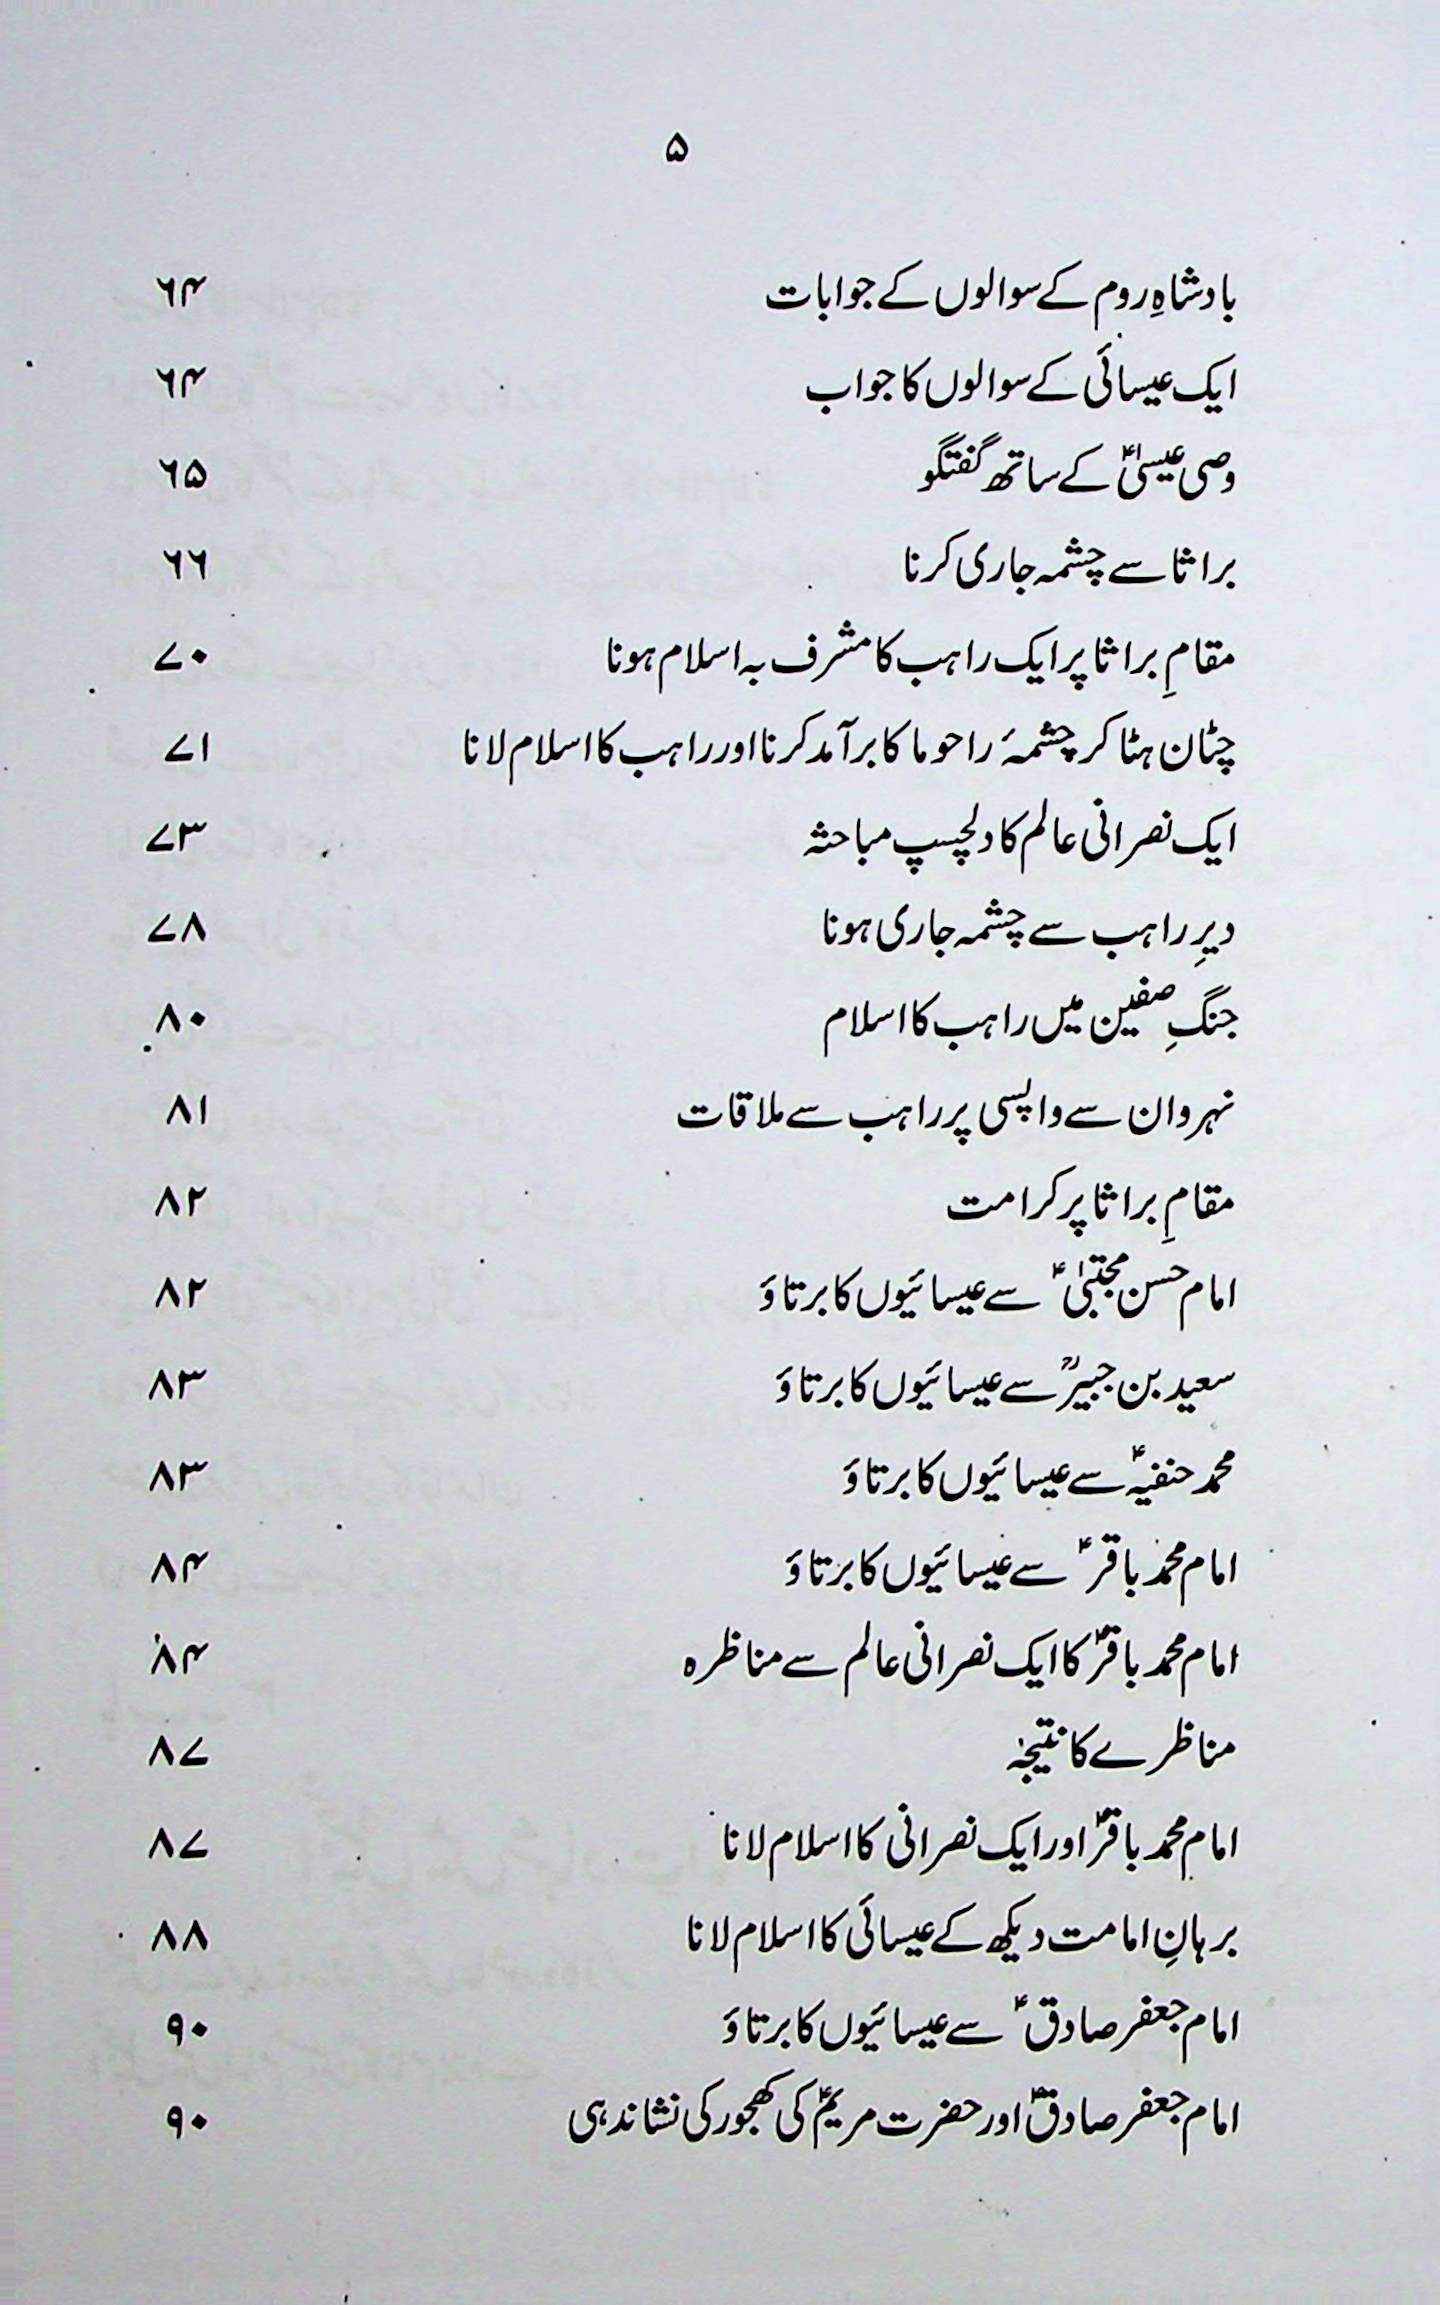 ۵
بادشاہِ روم کے سوالوں کے جوابات ۶۴
ایک عیسائی کے سوالوں کا جواب ۶۴
وصی عیسیٰؑ کے ساتھ گفتگو ۶۵
براثا سے چشمہ جاری کرنا ۶۶
مقامِ براثا پر ایک راہب کا مشرف بہ اسلام ہونا ۷۰
چٹان ہٹا کر چشمۂ راحوما کا برآمد کرنا اور راہب کا اسلام لانا ۷۱
ایک نصرانی عالم کا دلچسپ مباحثہ ۷۳
دیرِ راہب سے چشمہ جاری ہونا ۷۸
جنگِ صفین میں راہب کا اسلام ۸۰
نہروان سے واپسی پر راہب سے ملاقات ۸۱
مقامِ براثا پر کرامت ۸۲
امام حسن مجتبیٰ ؑ سے عیسائیوں کا برتاؤ ۸۲
سعید بن جبیرؒ سے عیسائیوں کا برتاؤ ۸۳
محمد حنفیہؑ سے عیسائیوں کا برتاؤ ۸۳
امام محمد باقر ؑ سے عیسائیوں کا برتاؤ ۸۴
امام محمد باقرؑ کا ایک نصرانی عالم سے مناظرہ ۸۴
مناظرے کا نتیجہ ۸۷
امام محمد باقرؑ اور ایک نصرانی کا اسلام لانا ۸۷
برہانِ امامت دیکھ کے عیسائی کا اسلام لانا ۸۸
امام جعفر صادق ؑ سے عیسائیوں کا برتاؤ ۹۰
امام جعفر صادقؑ اور حضرت مریمؑ کی کھجور کی نشاندہی ۹۰